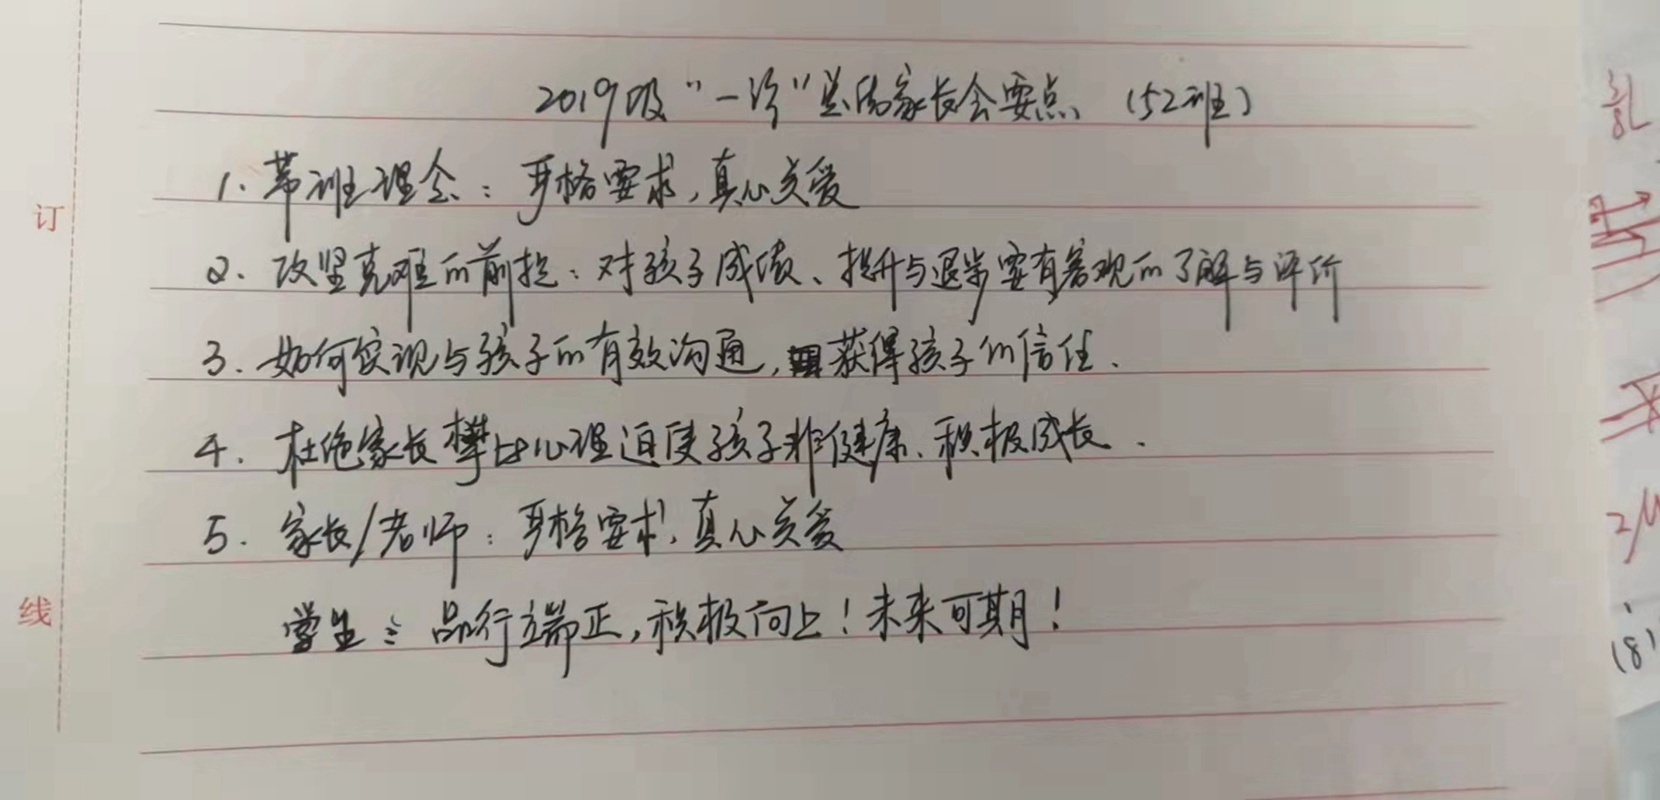 2019级“一诊”总结家长会要点 (52班)
1. 带班理念：严格要求，真心关爱
订
2. 攻坚克难的前提：对孩子成绩、提升与退步要有客观的了解与评价
3. 如何实现与孩子的有效沟通，获得孩子的信任.
4. 杜绝家长攀比心理迫使孩子非健康、积极成长.
5. 家长/老师：严格要求，真心关爱
线
学生：品行端正，积极向上！未来可期！
(8)